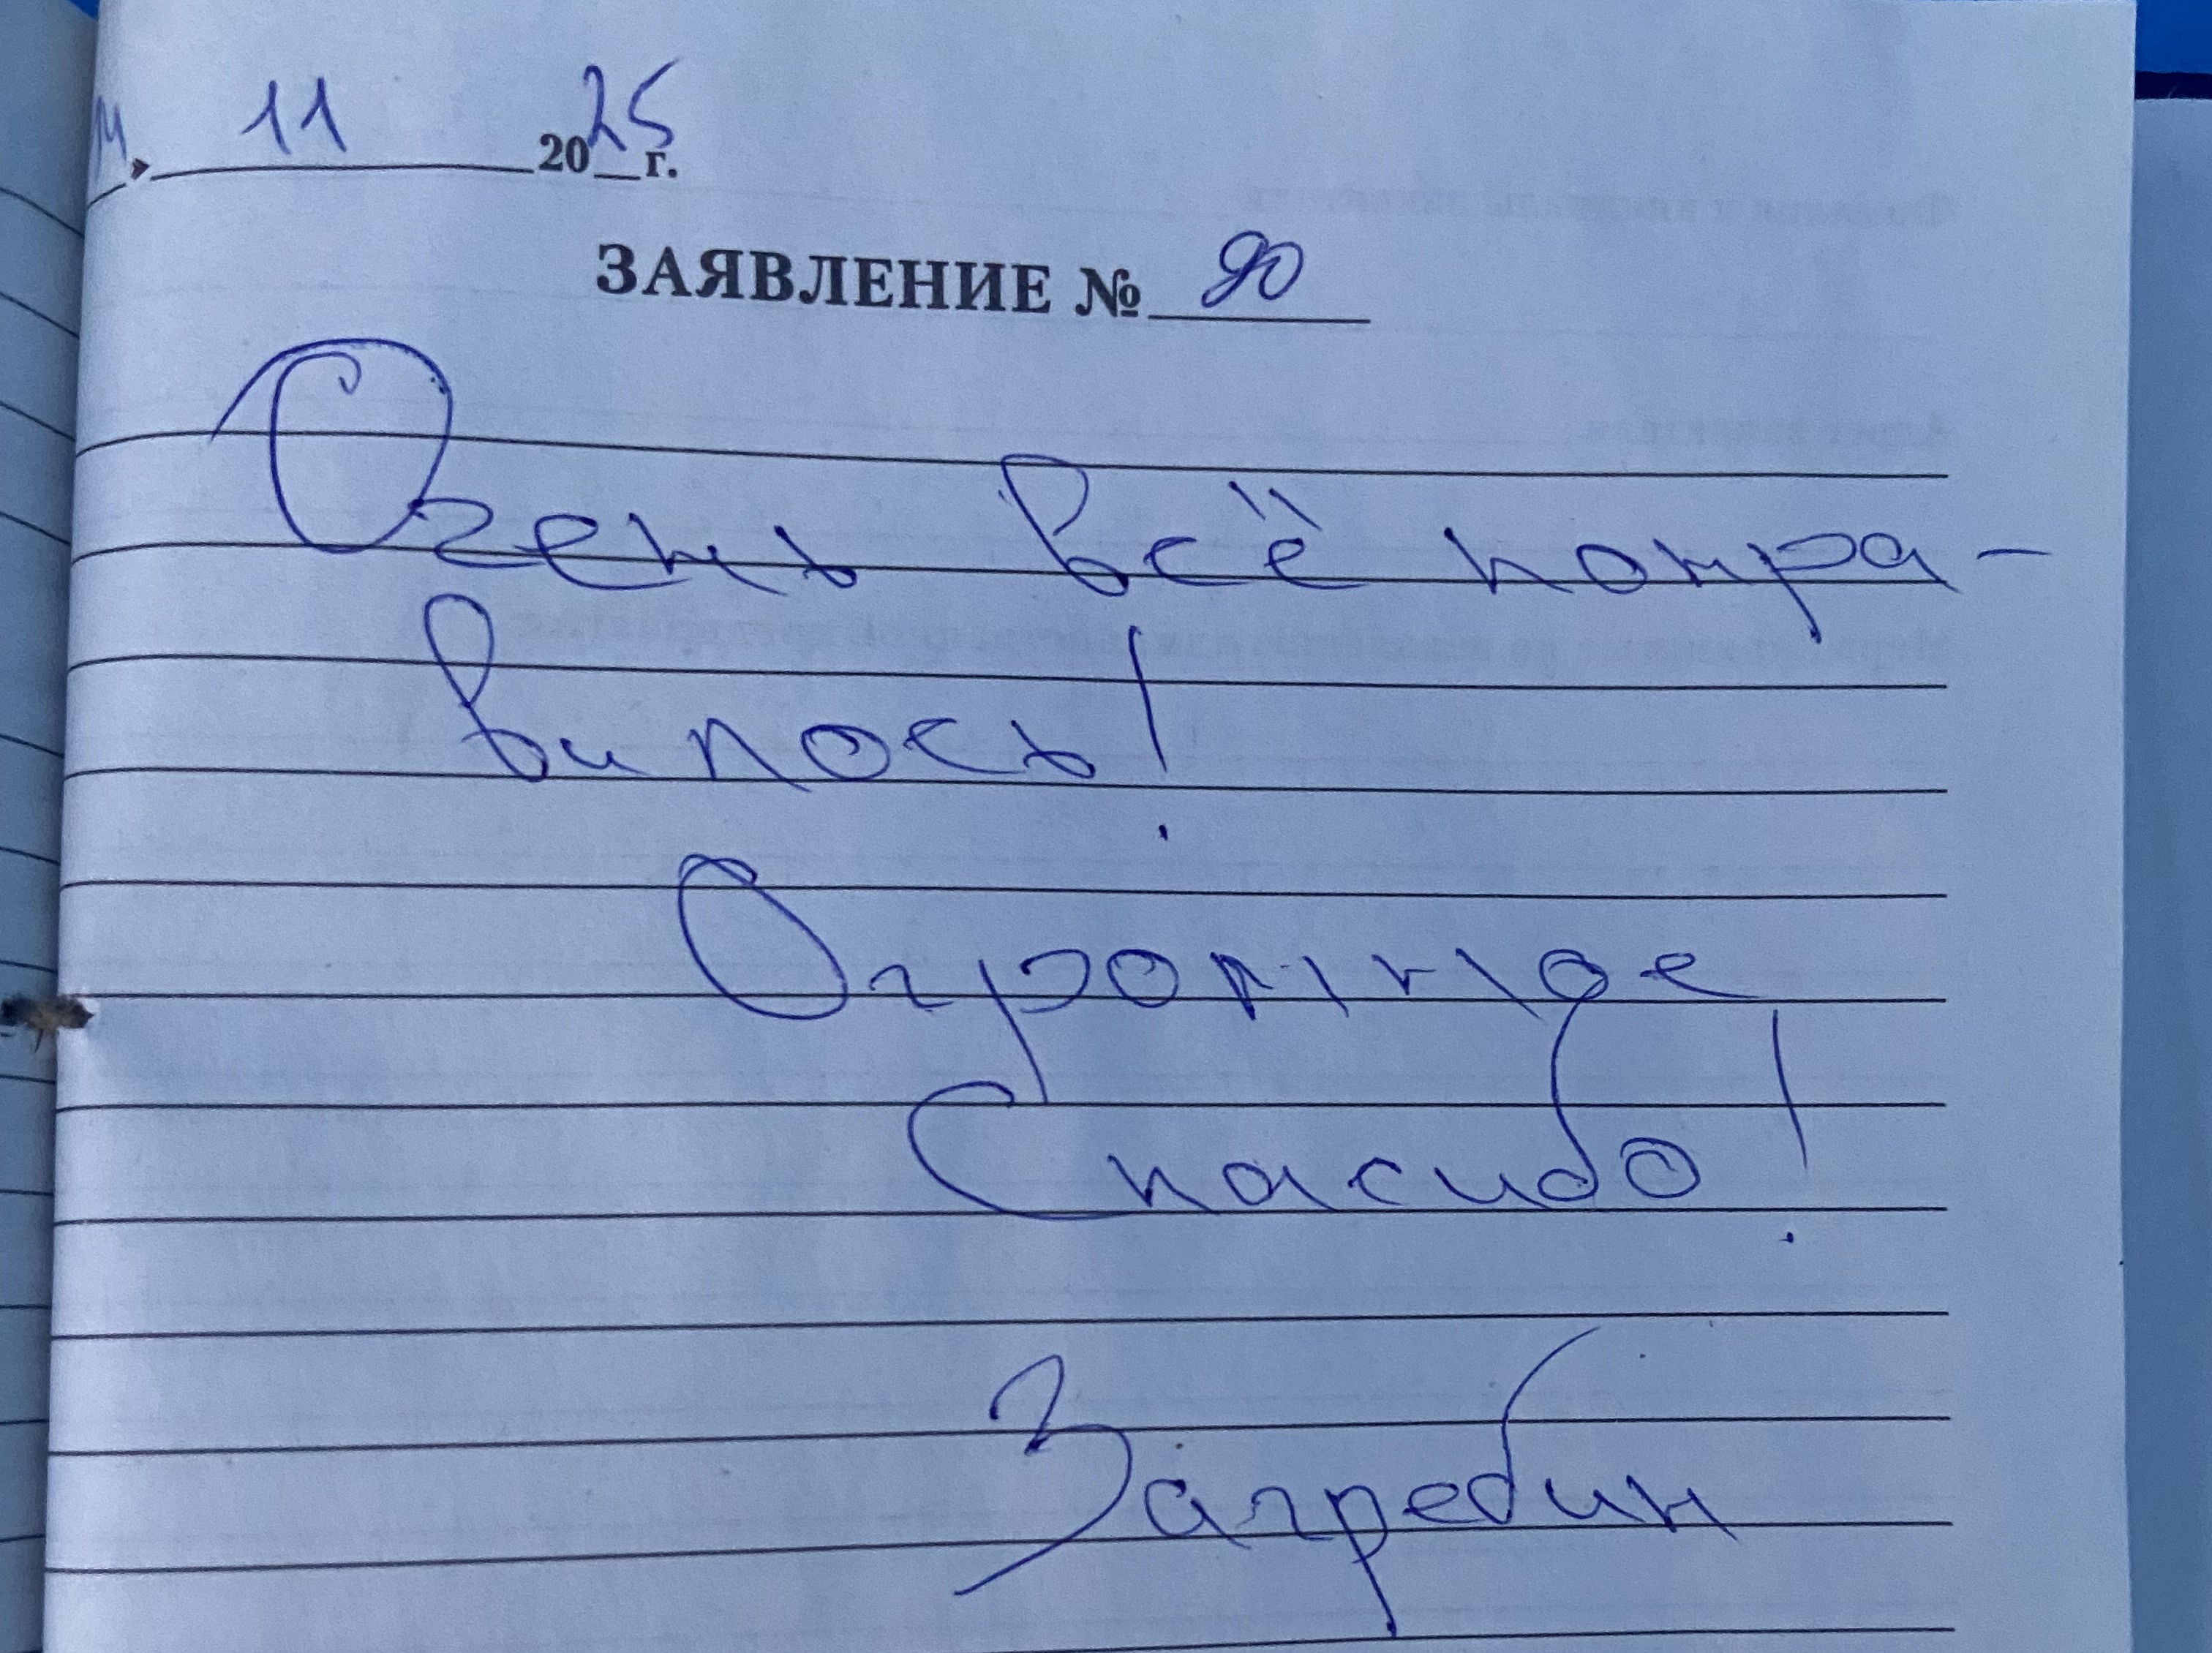 » 11 2025 г.
ЗАЯВЛЕНИЕ № 90
Очень всё понра-
вилось!
Огромное
Спасибо!
Загребин